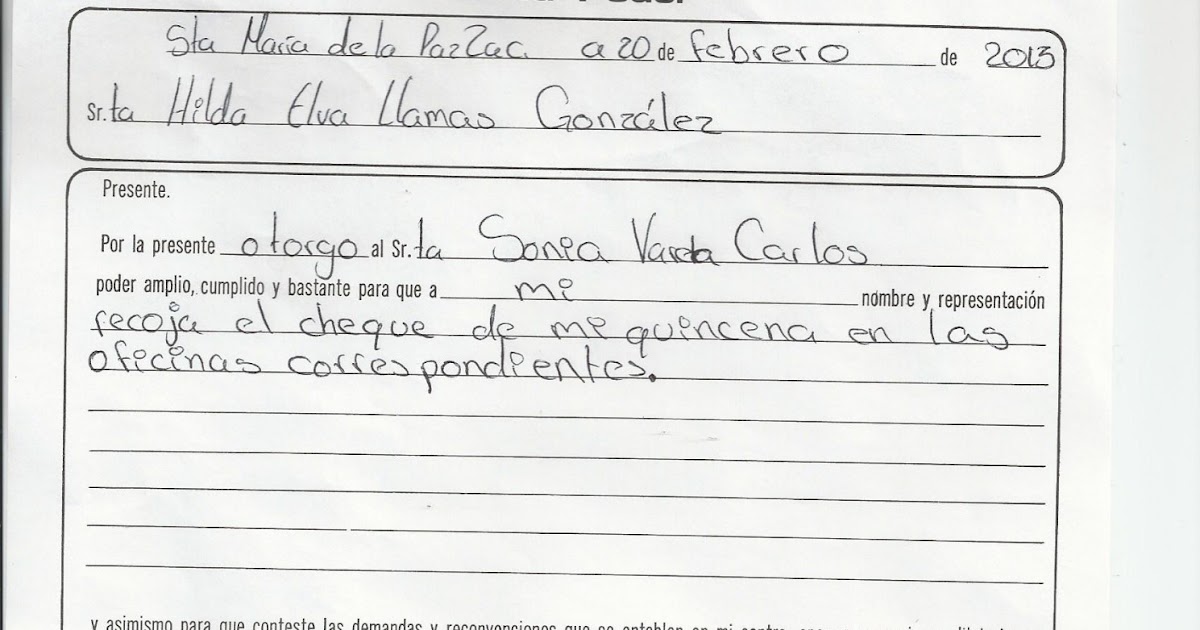 Sta María de la Paz Zac. a 20 de febrero de 2013
Sr.ta Hilda Elva Llamas González
Presente.
Por la presente otorgo al Sr.ta Sonia Varda Carlos
poder amplio, cumplido y bastante para que a mi nombre y representación
recoja el cheque de mi quincena en las
oficinas correspondientes.
y asimismo para que conteste las demandas y reconvenciones que se entablen en mi contra